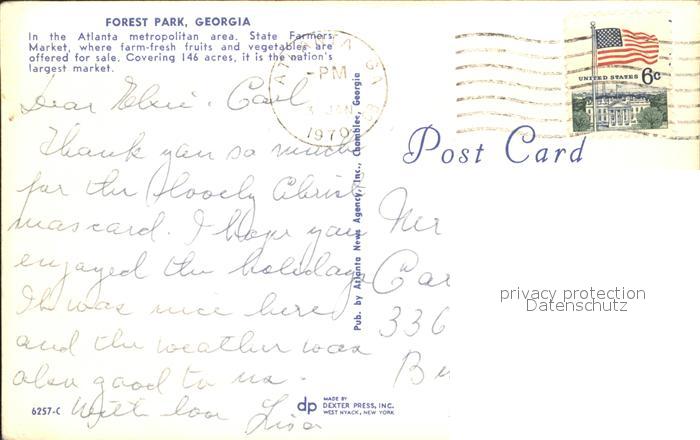 FOREST PARK, GEORGIA
In the Atlanta metropolitan area. State Farmers
Market, where farm-fresh fruits and vegetables are
offered for sale. Covering 146 acres, it is the nation's
largest market.
PM
JAN
1970
UNITED STATES 6c
Post Card
Dear Elsie · Carl
Thank you so much
for the lovely Christ
mascard. I hope you
enjoyed the holidays
It was nice here
and the weather was
also good to us.
With love Lisa
Pub. by Atlanta News Agency, Inc., Chamblee, Georgia
Mr
Car
336
Bu
privacy protection
Datenschutz
6257-C
dp MADE BY
DEXTER PRESS, INC.
WEST NYACK, NEW YORK